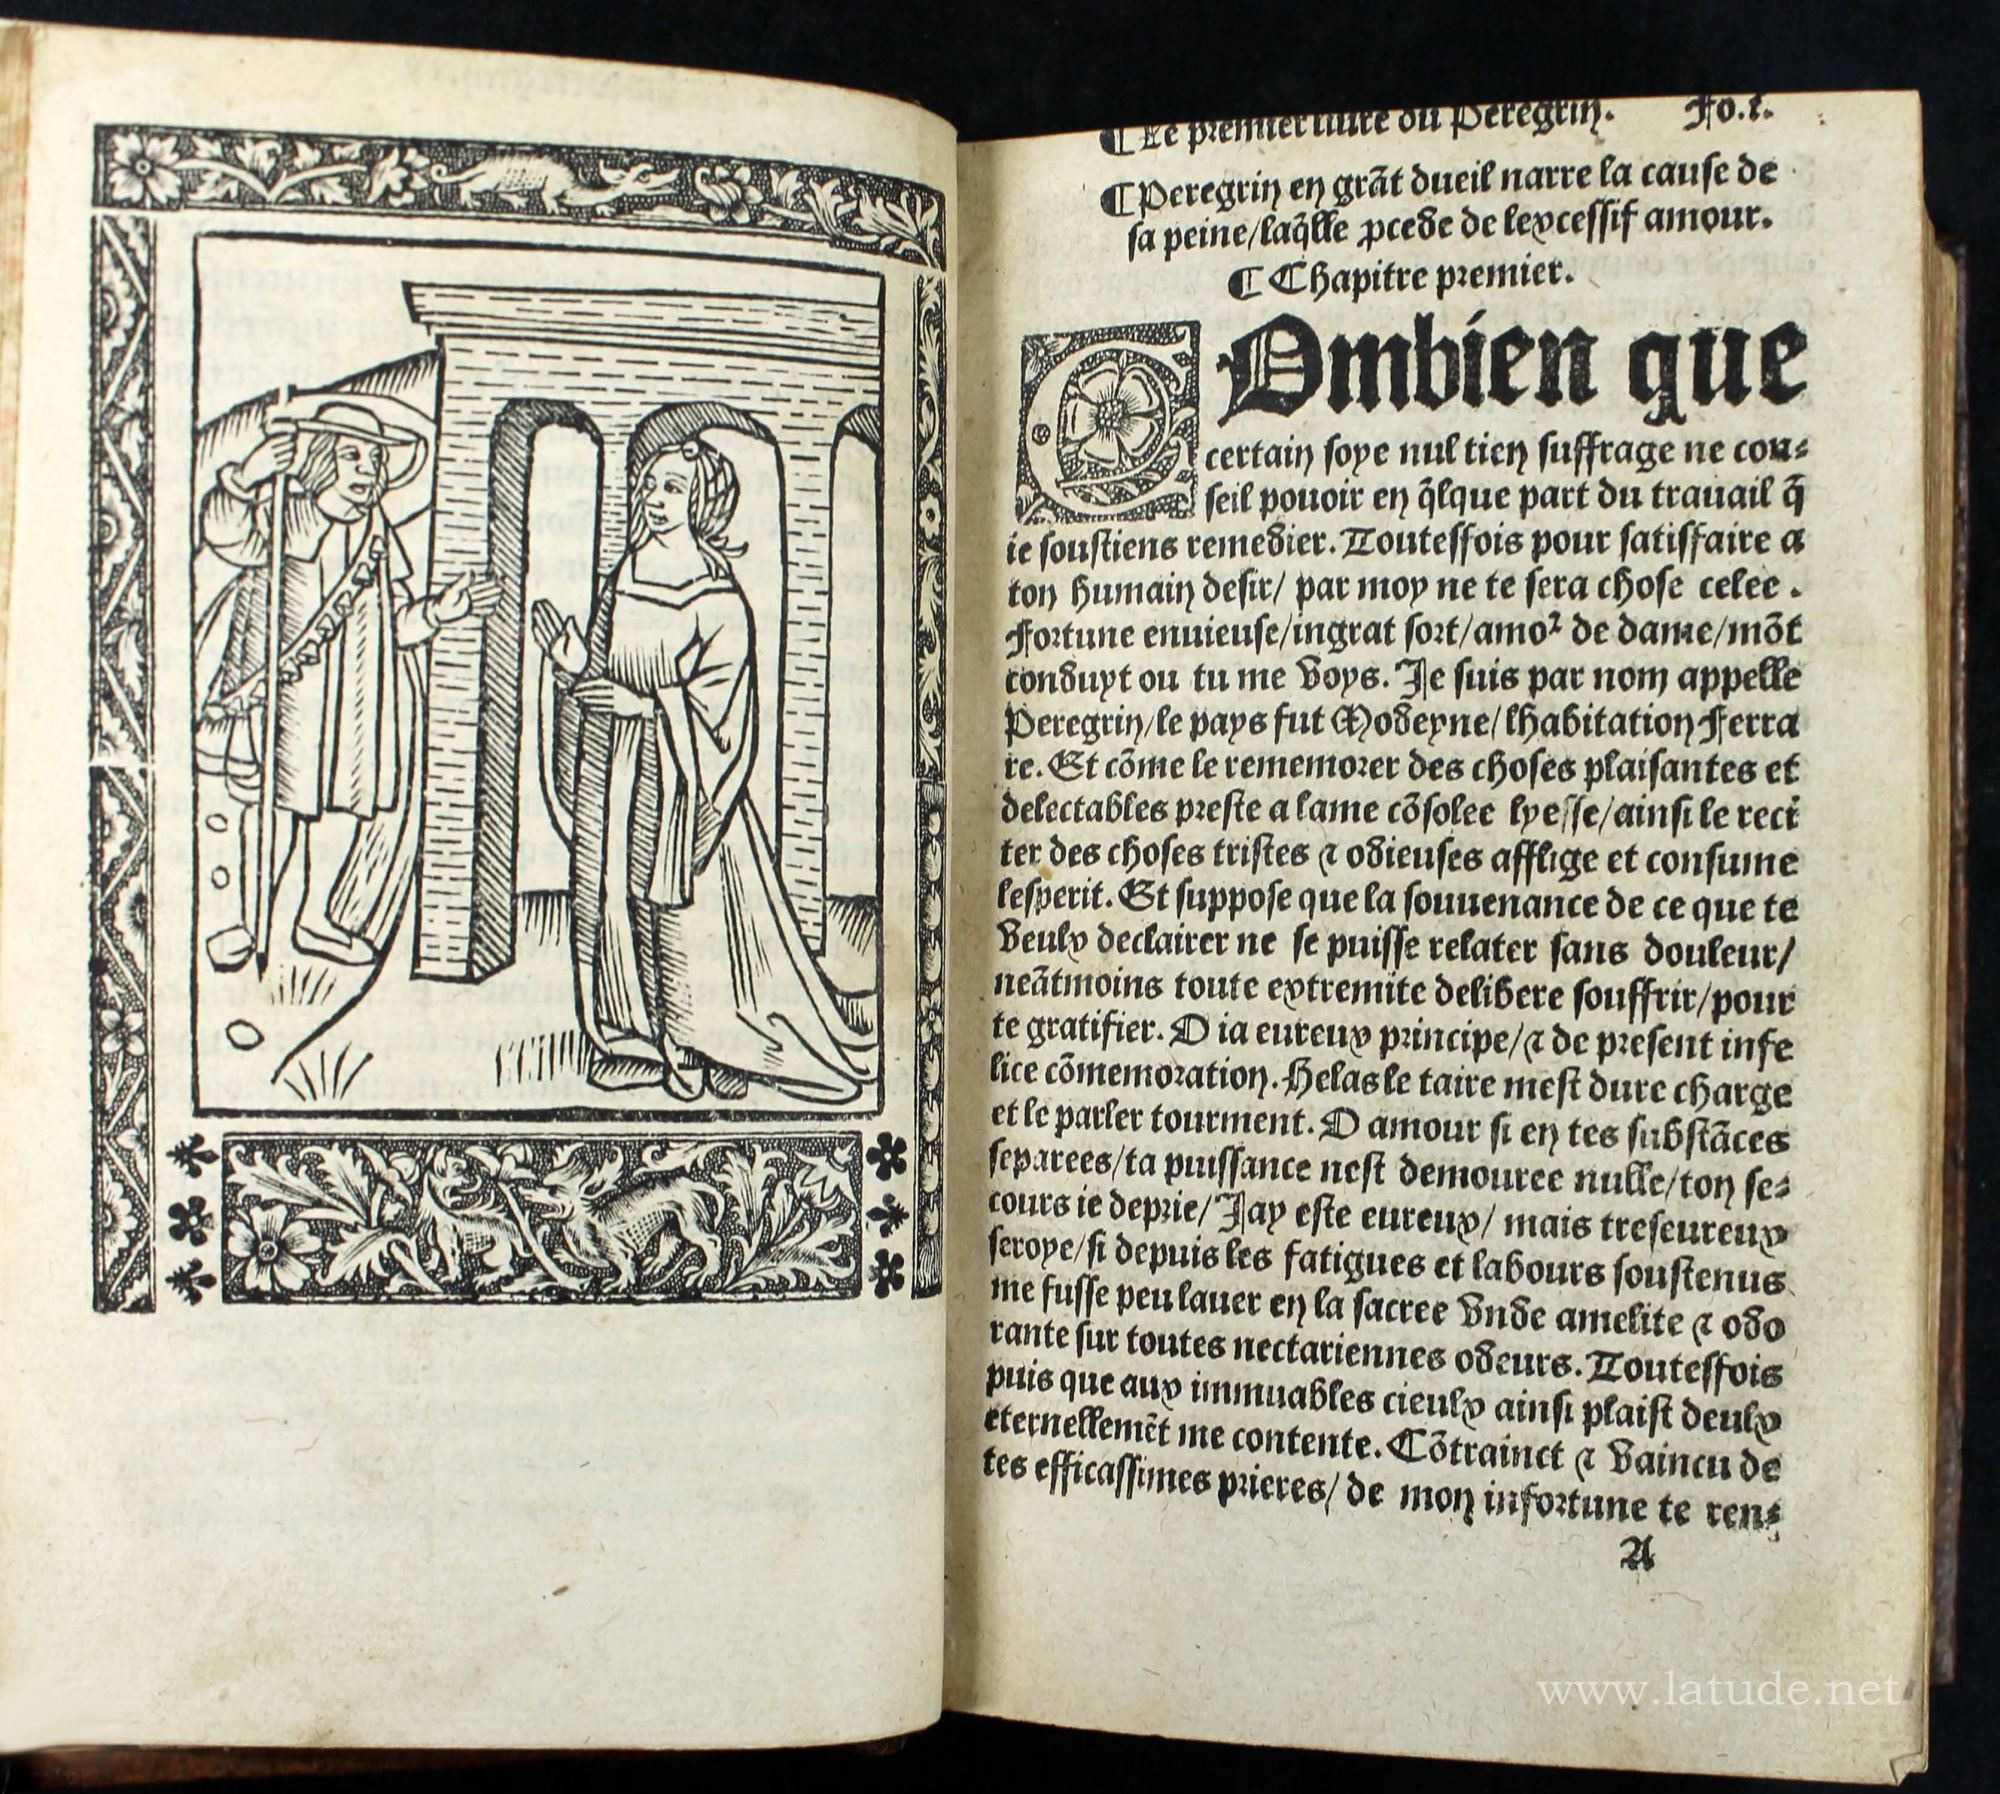 ¶ Le premier liure du Peregrin. Fo.i.
¶ Peregrin en grãt dueil narre la cause de
sa peine/laq̃lle ꝓcede de lexcessif amour.
¶ Chapitre premier.
COmbien que
certain soye nul tien suffrage ne con⸗
seil pouoir en q̃lque part du trauail q̃
ie soustiens remedier. Toutesfois pour satisfaire a
ton humain desir/ par moy ne te sera chose celee.
Fortune enuieuse/ingrat sort/amoꝰ de dame/mõt
conduyt ou tu me voys. Je suis par nom appelle
Peregrin/le pays fut Modeyne/lhabitation Ferra
re. Et cõme le rememorer des choses plaisantes et
delectables preste a lame cõsolee lyesse/ainsi le reci
ter des choses tristes ⁊ odieuses afflige et consume
lesperit. Et suppose que la souuenance de ce que te
veulx declairer ne se puisse relater sans douleur/
neãtmoins toute extremite delibere souffrir/pour
te gratifier. O ia eureux principe/⁊ de present infe
lice cõmemoration. Helas le taire mest dure charge
et le parler tourment. O amour si en tes substãces
separees/ta puissance nest demouree nulle/ton se⸗
cours ie deprie/Jay este eureux/ mais treseureux
seroye/si depuis les fatigues et labours soustenus
me fusse peu lauer en la sacree vnde amelite ⁊ odo
rante sur toutes nectariennes odeurs. Toutesfois
puis que aux immuables cieulx ainsi plaist deulx
eternellemẽt me contente. Cõtrainct ⁊ vaincu de
tes efficassimes prieres/ de mon infortune te ren⸗
A
www.latude.net